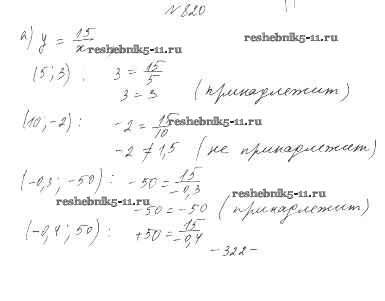 № 820
а) y = 15/x
reshebnik5-11.ru
reshebnik5-11.ru
(5; 3): 3 = 15/5
3 = 3 (принадлежит)
(10; -2): -2 = 15/10
reshebnik5-11.ru
-2 ≠ 1,5 (не принадлежит)
(-0,3; -50): -50 = 15/-0,3
reshebnik5-11.ru
-50 = -50 (принадлежит)
reshebnik5-11.ru
(-0,4; 50): +50 = 15/-0,4
-322-